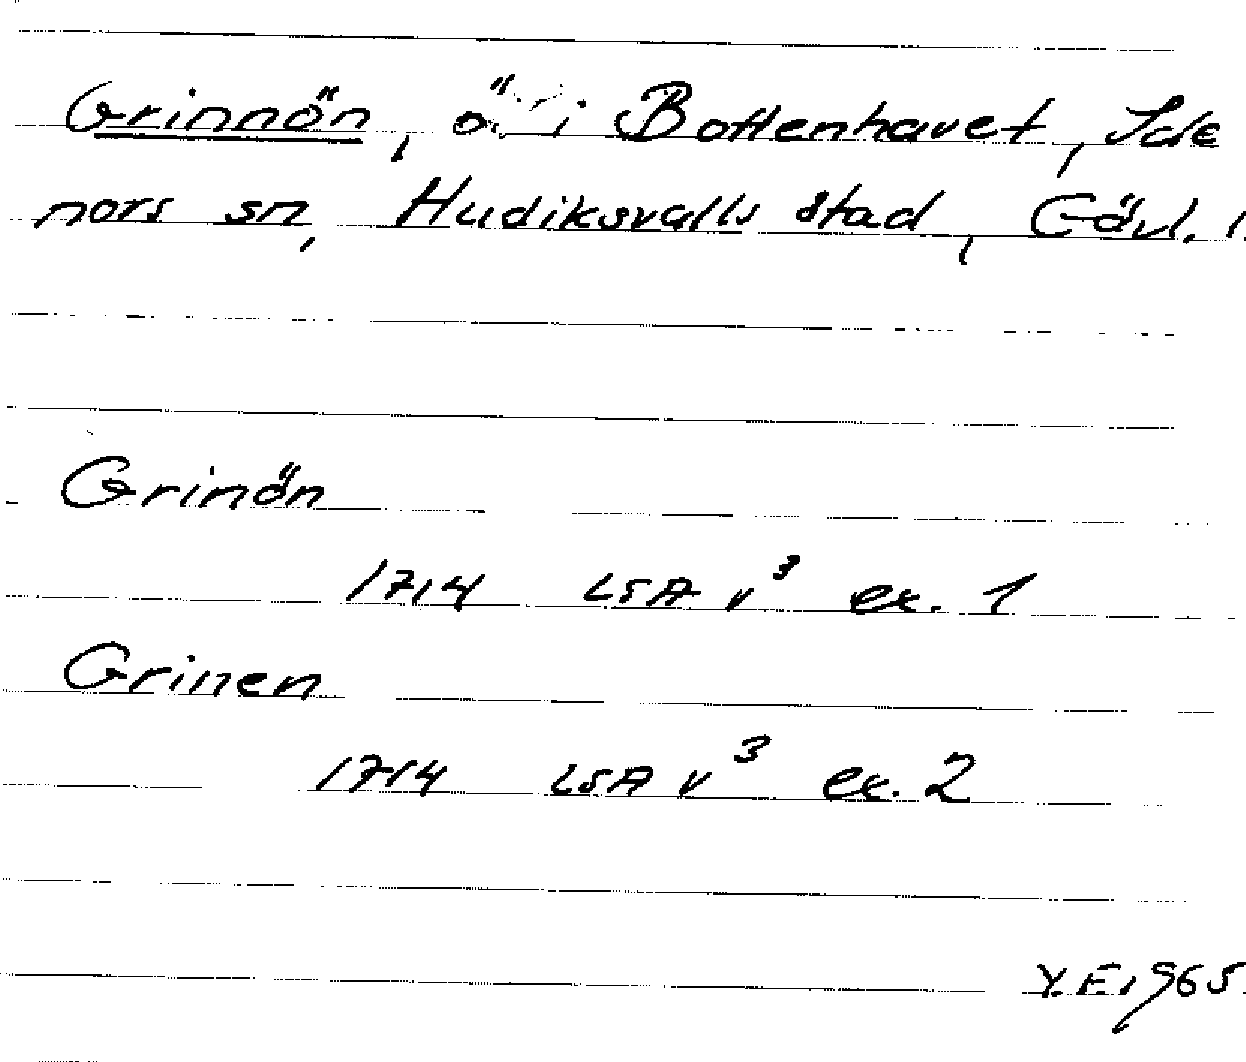 Grinnön, ö i Bottenhavet, Ide
nors sn, Hudiksvalls stad, Gävl. l.
Grinön
1714 LSA v³ ex. 1
Grinen
1714 LSA v³ ex. 2
Y.E. 1965